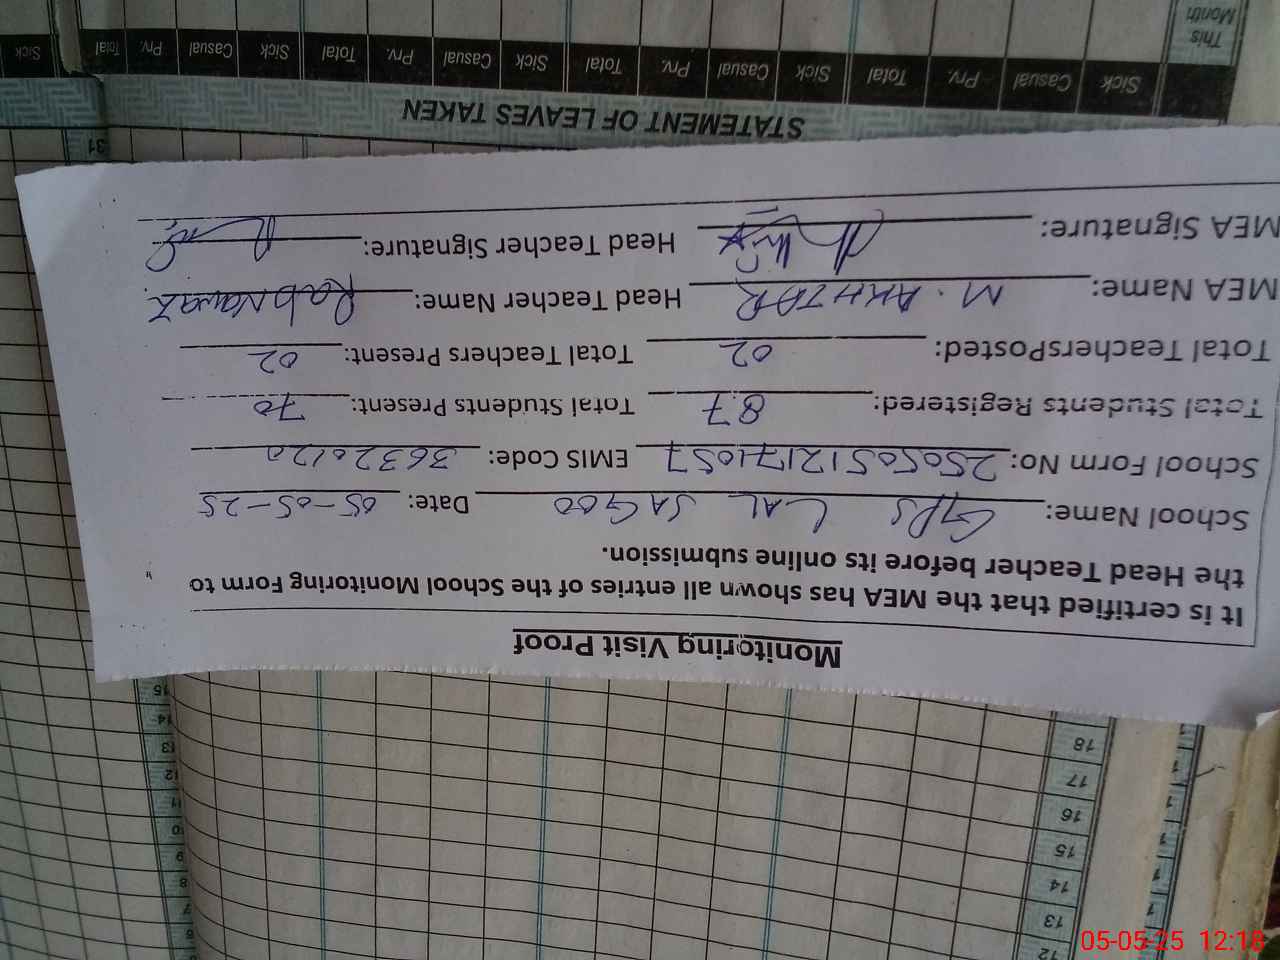 Monitoring Visit Proof
It is certified that the MEA has shown all entries of the School Monitoring Form to
the Head Teacher before its online submission.
School Name: GPS LAL SAGOO Date: 05-05-25
School Form No: 25050512171057 EMIS Code: 36320120
Total Students Registered: 87 Total Students Present: 70
Total TeachersPosted: 02 Total Teachers Present: 02
MEA Name: M. AKHTAR Head Teacher Name: Rab Nawaz
MEA Signature: Head Teacher Signature:
31
STATEMENT OF LEAVES TAKEN
Sick Casual Prv. Total Sick Casual Prv. Total Sick Casual Prv. Total Sick Casual Prv. Total Sick
This Month
12
13
14
15
16
17
18
7
8
9
10
11
12
13
14
15
05-05-25 12:18